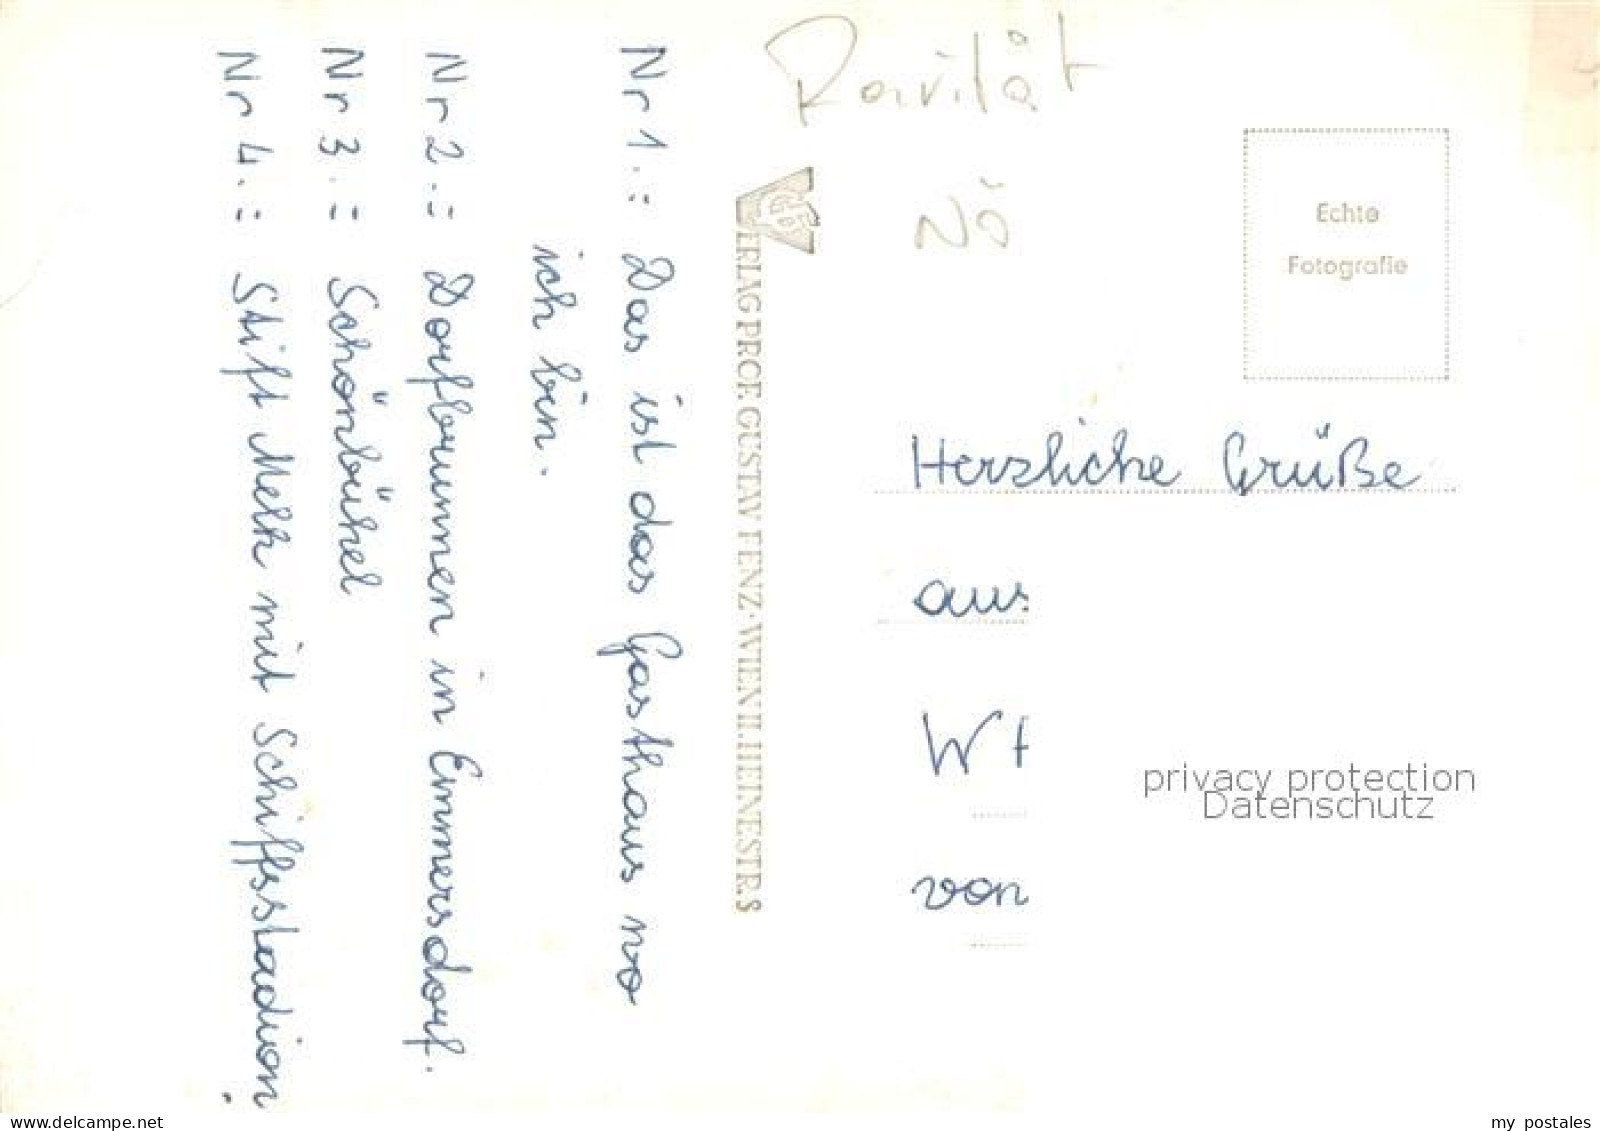 Nr 1.: Das ist das Gasthaus wo
ich bin.
Nr 2.: Dorfbrunnen in Emmersdorf.
Nr 3.: Schönbühel
Nr 4.: Stift Melk mit Schiffsstadion.
VERLAG PRCE GUSTAV FENZ·WIEN II.HEINESTR.8
Rarität
NÖ
Echte
Fotografie
Herzliche Grüße
aus
von
privacy protection
Datenschutz
www.delcampe.net
my_postales